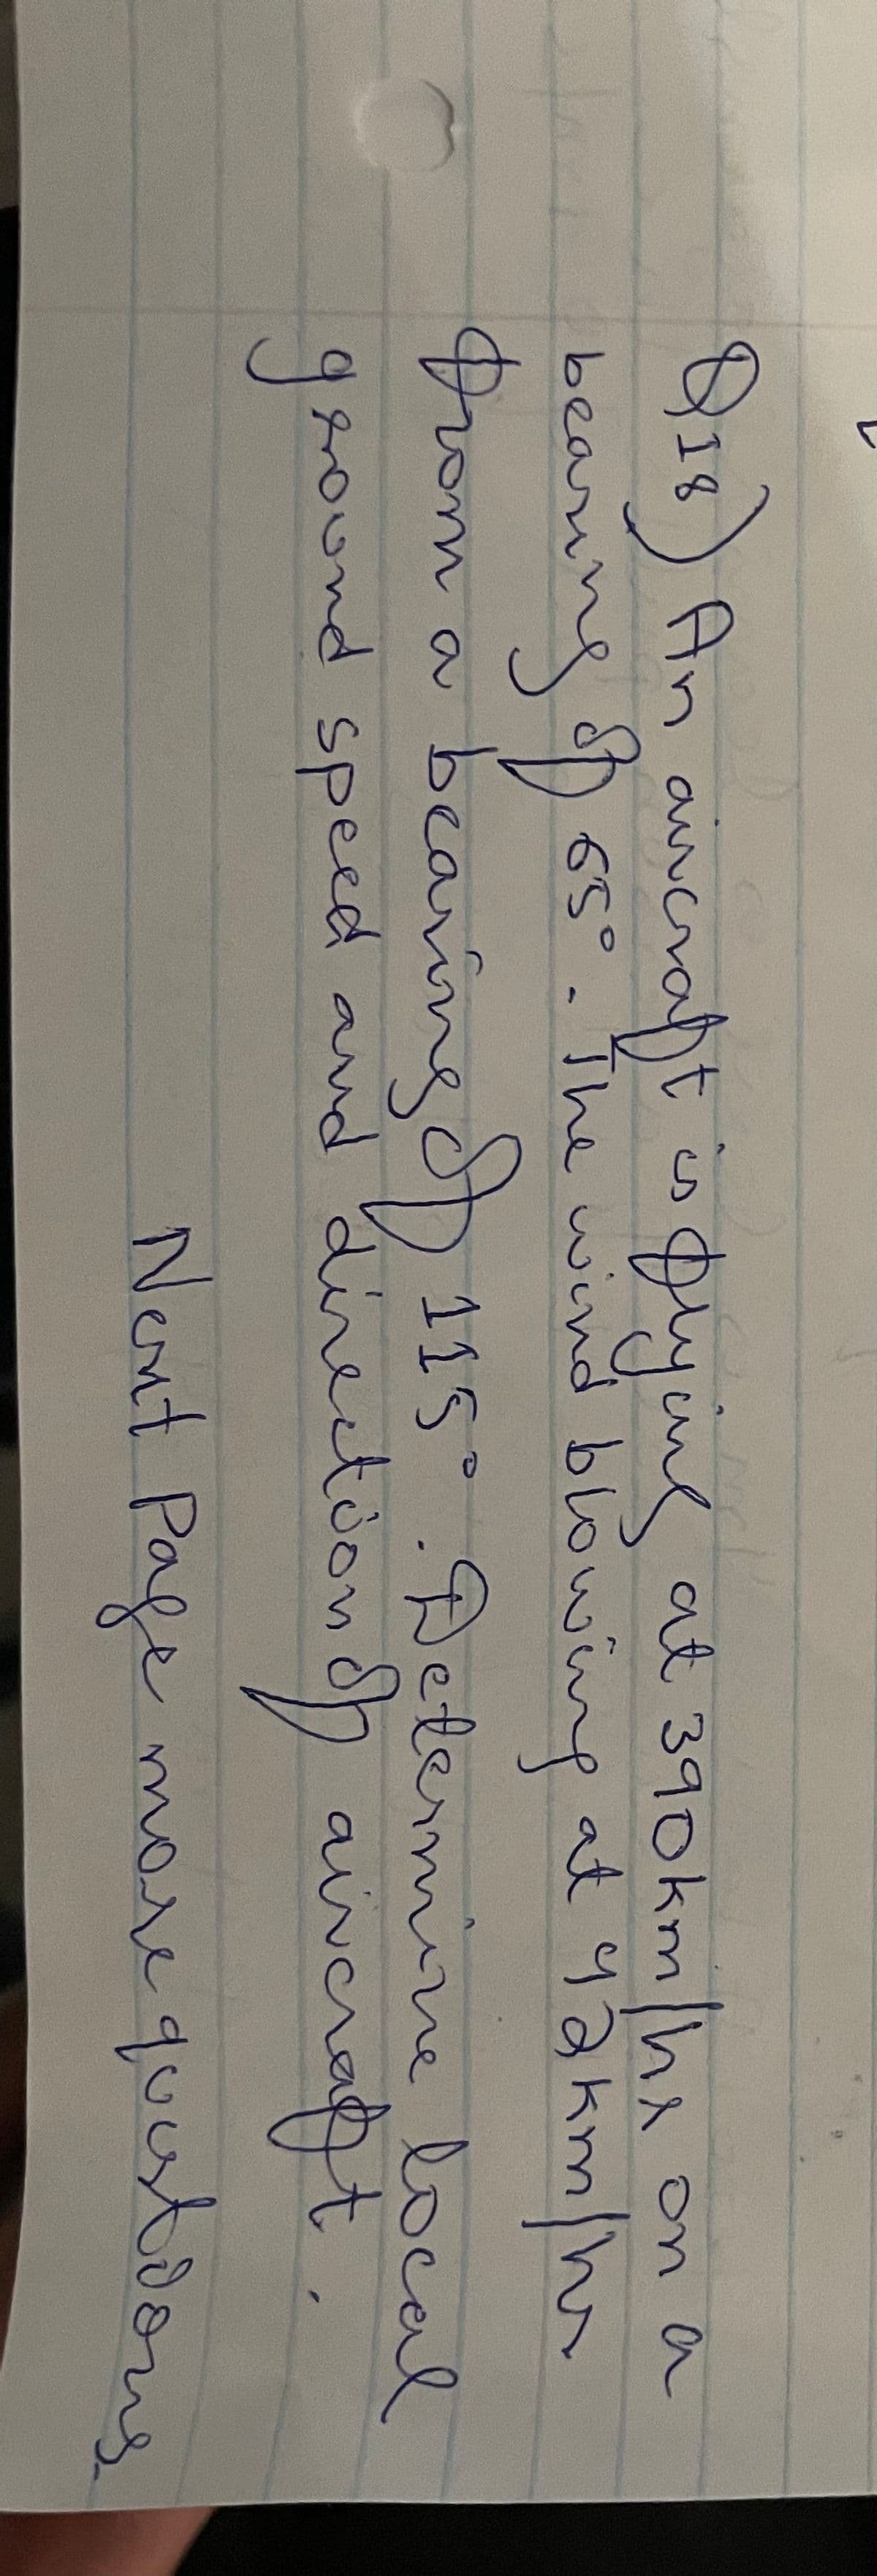 Q18) An aircraft is flying at 390km/hr on a
bearing of 65°. The wind blowing at 42km/hr
from a bearing of 115°. Determine local
ground speed and direction of aircraft.
Next Page more questions